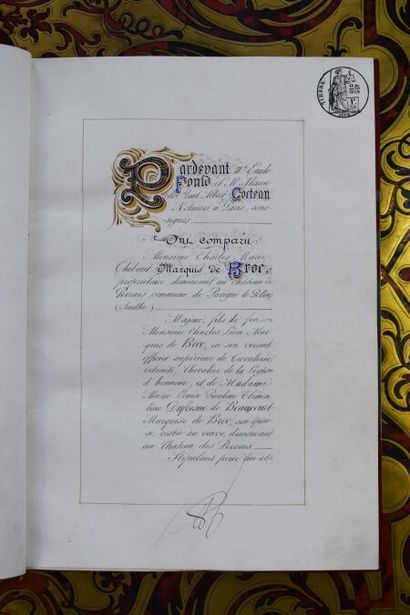 TIMBRE
Pardevant Mᵉ Emile
Fould et Mᵉ Alexan
dre Paul Albert Cocteau
Notaires à Paris, sous-
signés
Ont comparu
Monsieur Charles Marie
Thibaut Marquis de Broc,
propriétaire, demeurant au château des
Perrais, commune de Parigné le Polin
(Sarthe)
Majeur, fils de feu
Monsieur Charles Léon Mar-
quis de Broc, en son vivant
officier supérieur de Cavalerie
retraité, Chevalier de la Légion
d'honneur, et de Madame
Marie Louise Pauline Clémen-
tine Dufresne de Beaucourt
Marquise de Broc, son épou-
se, restée sa veuve, demeurant
au Château des Perrais
Stipulant pour lui et